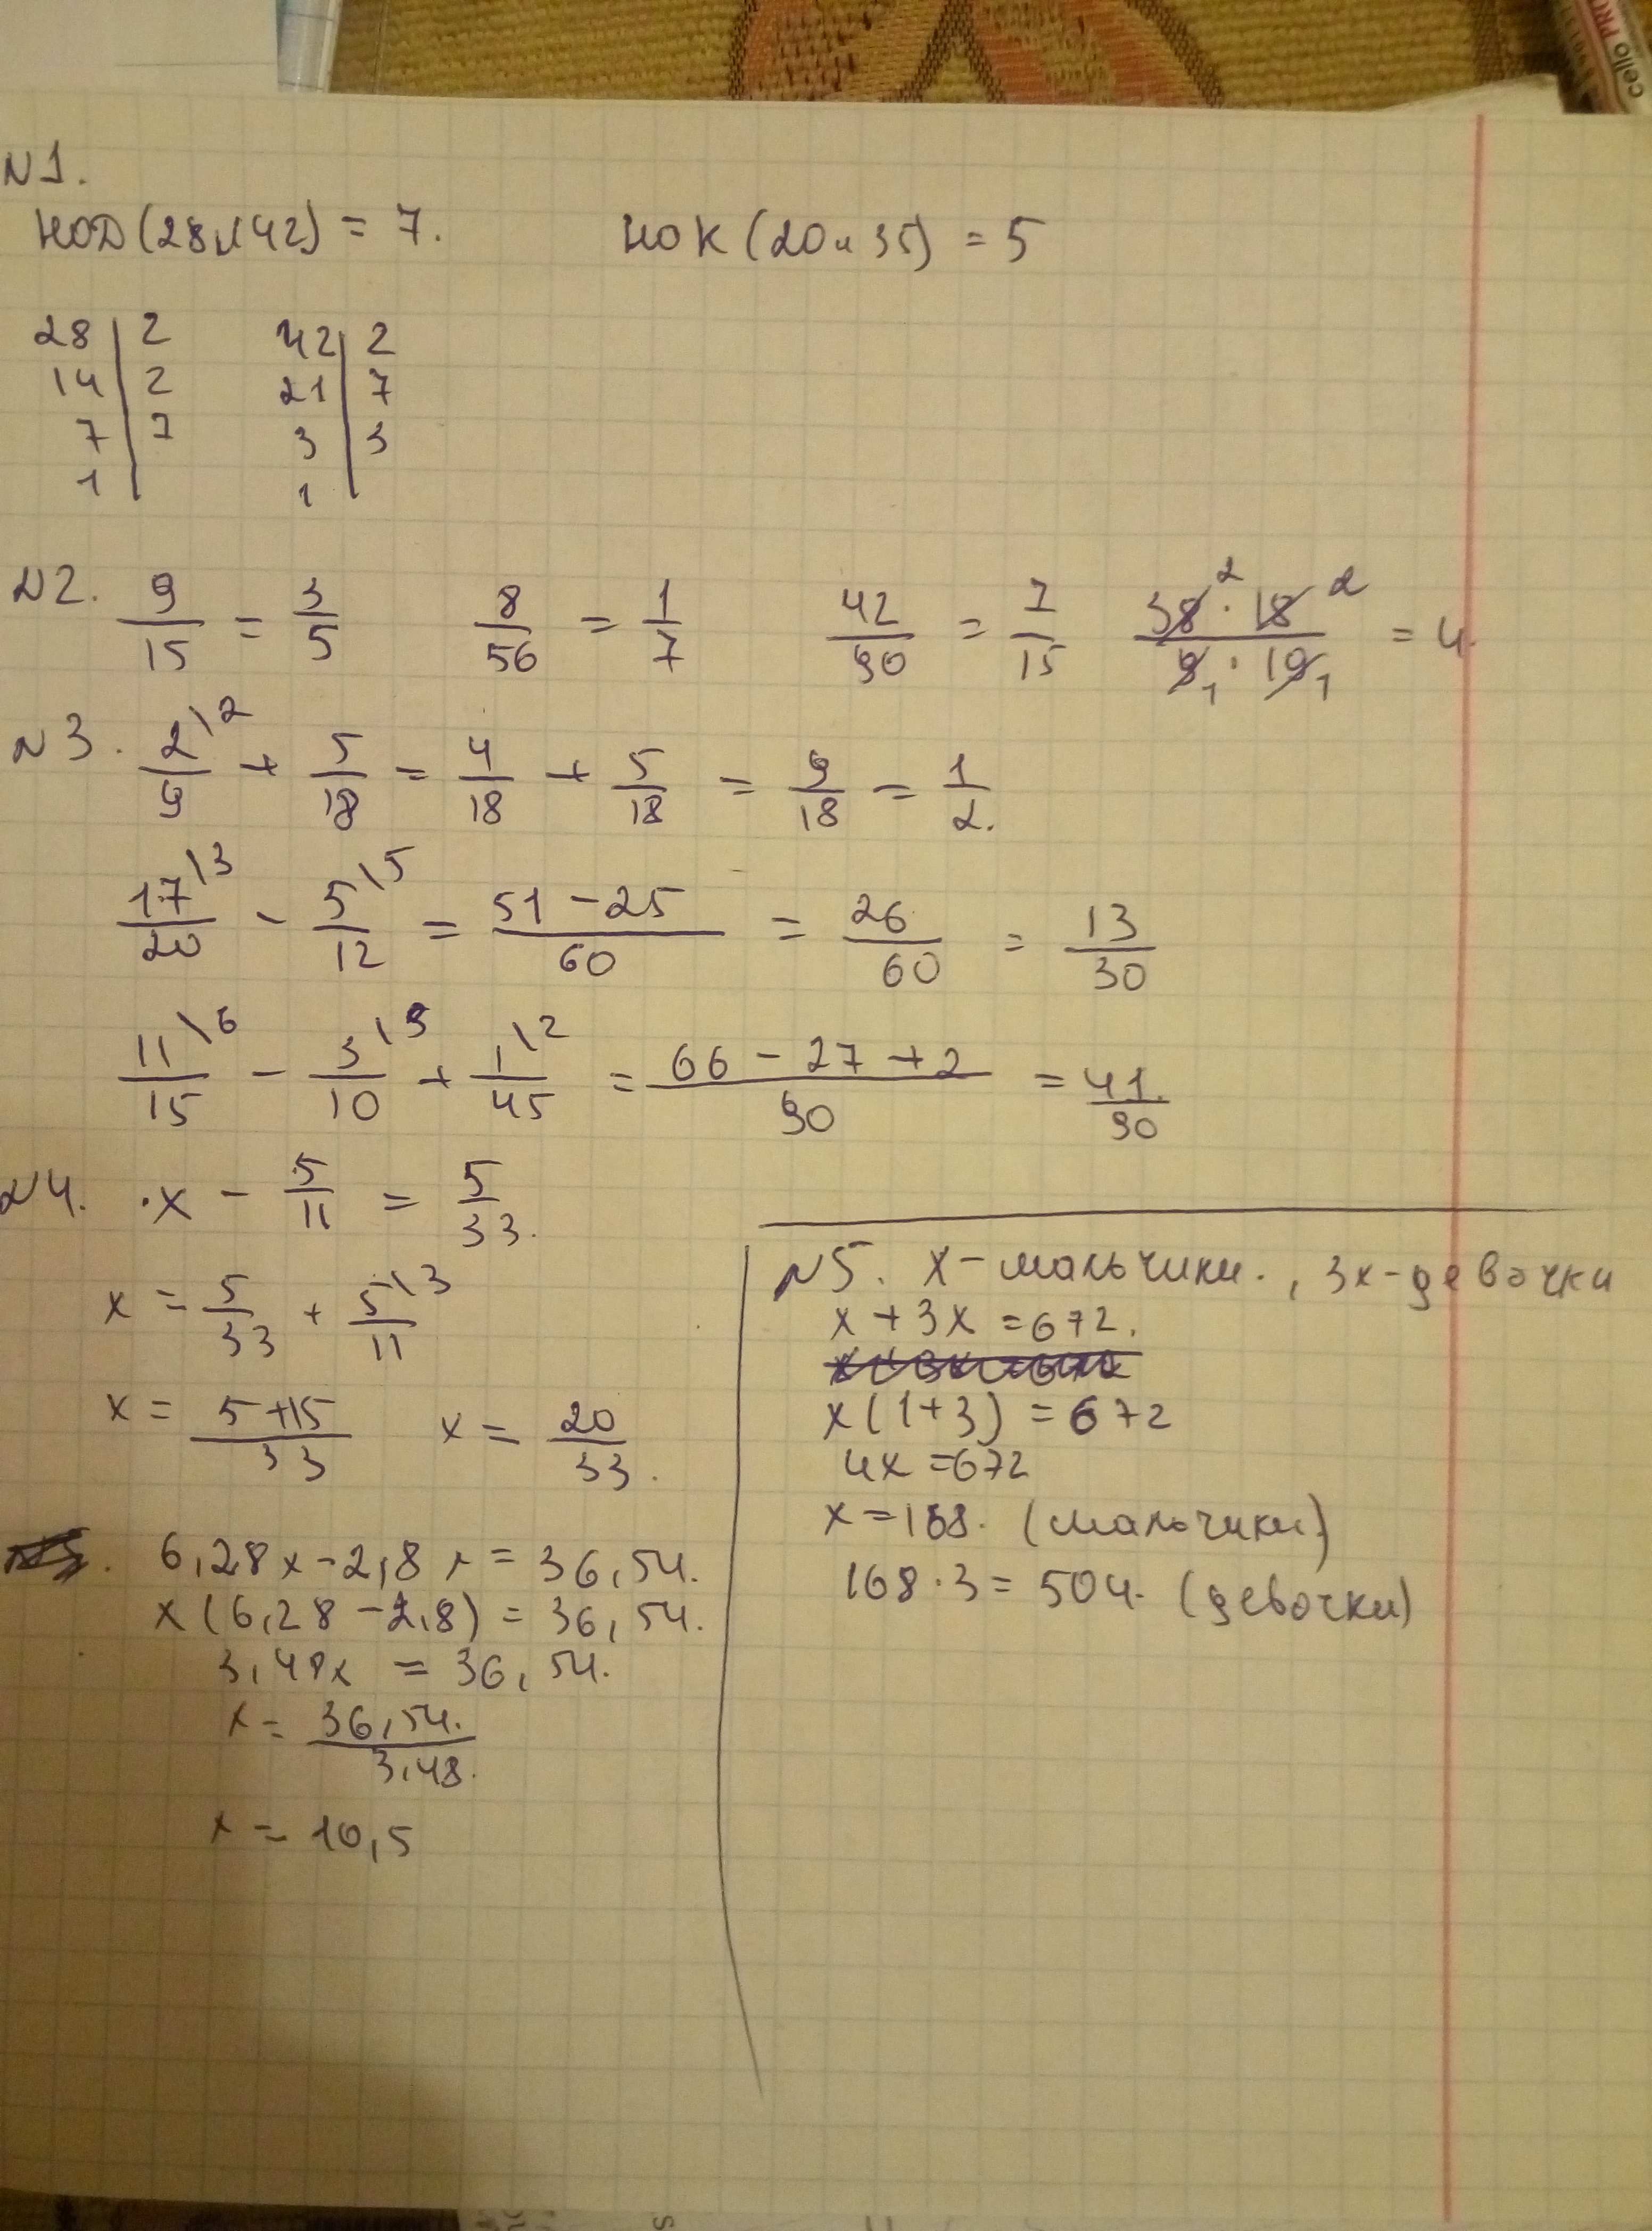 N1.
НОД (28и42) = 7. НОК (20 и 35) = 5
28 | 2 42 | 2
14 | 2 21 | 7
7 | 7 3 | 3
1 | 1 |
N2. 9/15 = 3/5 8/56 = 1/7 42/90 = 7/15 38² · 18²/9₁ · 19₁ = 4.
N3. 2\2/9 + 5/18 = 4/18 + 5/18 = 9/18 = 1/2.
17\3/20 - 5\5/12 = 51 - 25/60 = 26/60 = 13/30
11\6/15 - 3\9/10 + 1\2/45 = 66 - 27 + 2/90 = 41/90
N4. x - 5/11 = 5/33.
x = 5/33 + 5\3/11
x = 5+15/33 x = 20/33.
6,28x - 2,8x = 36,54.
x(6,28 - 2,8) = 36,54.
3,48x = 36,54.
x = 36,54./3,48.
x = 10,5
N5. x - мальчики., 3x - девочки
x + 3x = 672.
x(1+3) = 672
4x = 672
x = 168. (мальчики)
168 · 3 = 504. (девочки)
cello